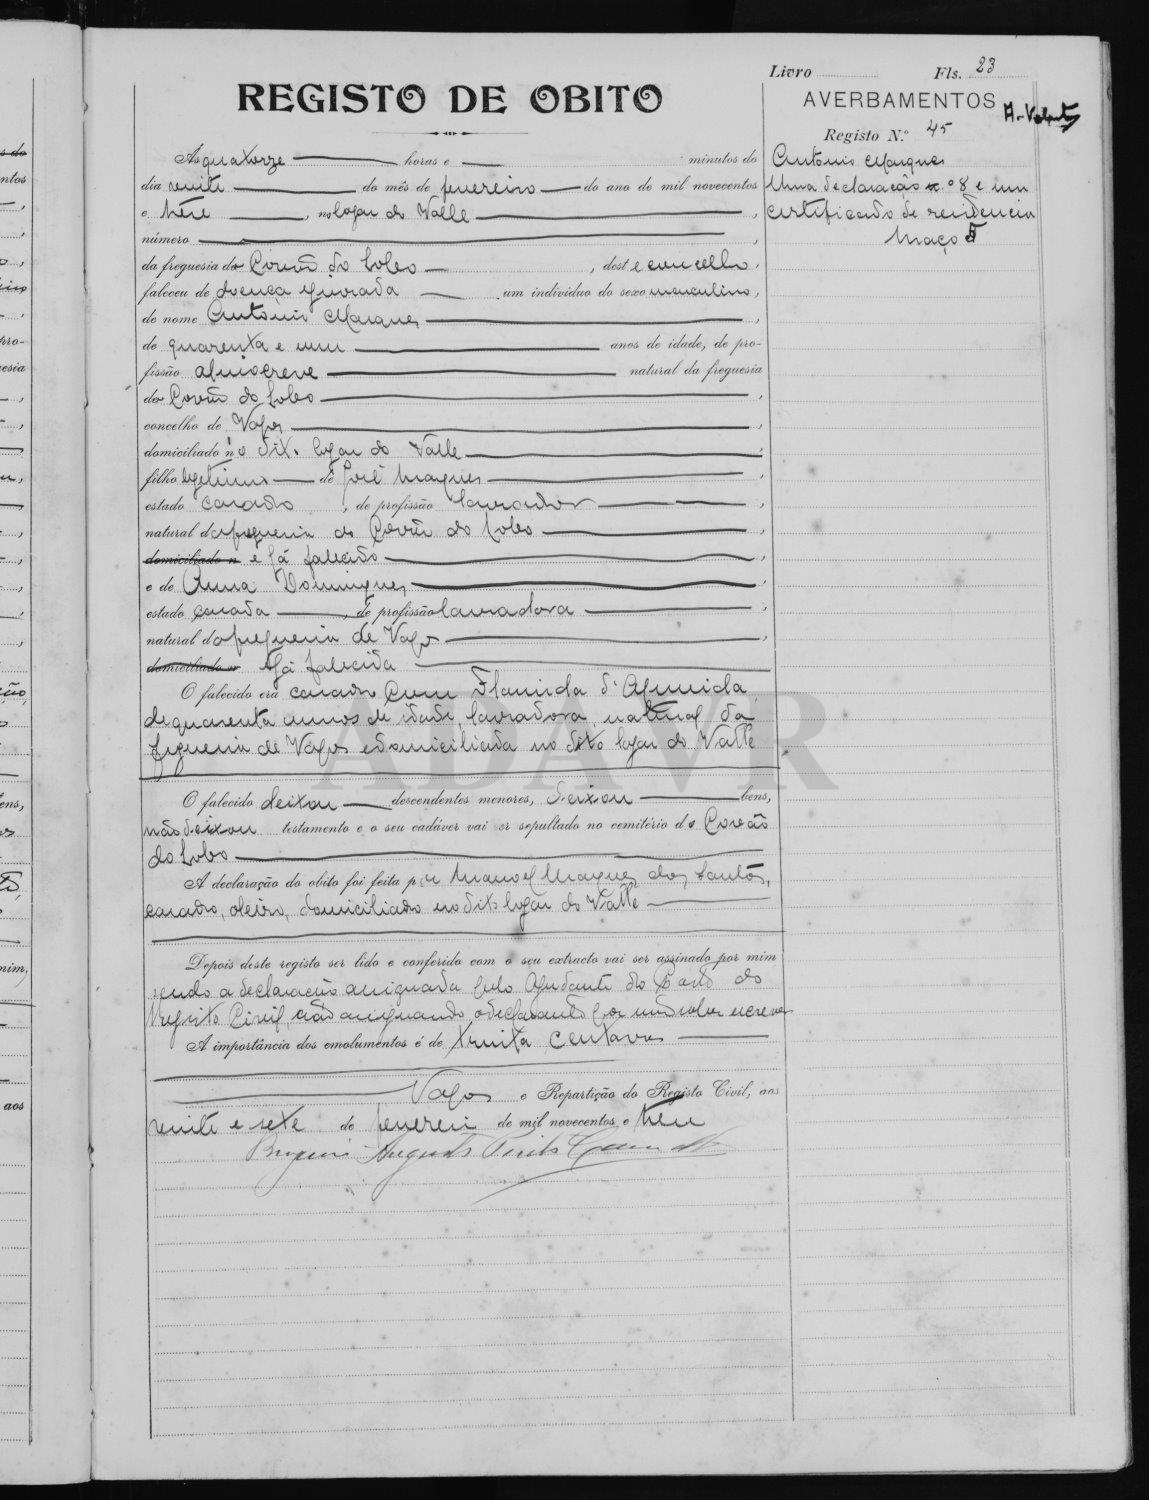 Livro Fls. 23
REGISTO DE OBITO
AVERBAMENTOS
Registo N.º 45
Antonio Marques
Uma declaração n.º 8 e um
certificado de residencia
Maço 5
Ás quatorze horas e minutos do
dia vinte do mês de fevereiro do ano de mil novecentos
e treze, no logar do Valle
número
da freguesia de Covão do Lobo, deste concelho,
faleceu de doença ignorada um individuo do sexo masculino,
de nome Antonio Marques
de quarenta e um anos de idade, de pro-
fissão almocreve natural da freguesia
do Covão do Lobo,
concelho de Vagos,
domiciliado no dito logar do Valle,
filho legitimo de José Marques,
estado casado, de profissão lavrador,
natural da freguesia do Covão do Lobo,
domiciliado n e já falecido,
e de Anna Domingues,
estado casada, de profissão lavradora,
natural da freguesia de Vagos,
domiciliado n já falecida
O falecido era casado com d'Almeida
de quarenta annos de idade, lavradora, natural da
freguesia de Vagos e domiciliada no dito logar do Valle
O falecido deixou descendentes menores, deixou bens,
não deixou testamento e o seu cadáver vai ser sepultado no cemitério do Covão
do Lobo
A declaração do obito foi feita por Manoel Marques dos Santos,
casado, oleiro, domiciliado no dito logar do Valle
Depois deste registo ser lido e conferido com o seu extracto vai ser assinado por mim
sendo a declaração assignada pelo Ajudante do Posto do
Registo Civil, não assignando o declarante por não saber escrever
A importância dos emolumentos é de trinta centavos
Vagos e Repartição do Registo Civil, aos
vinte e sete de fevereiro de mil novecentos e treze
Augusto
ADAVR